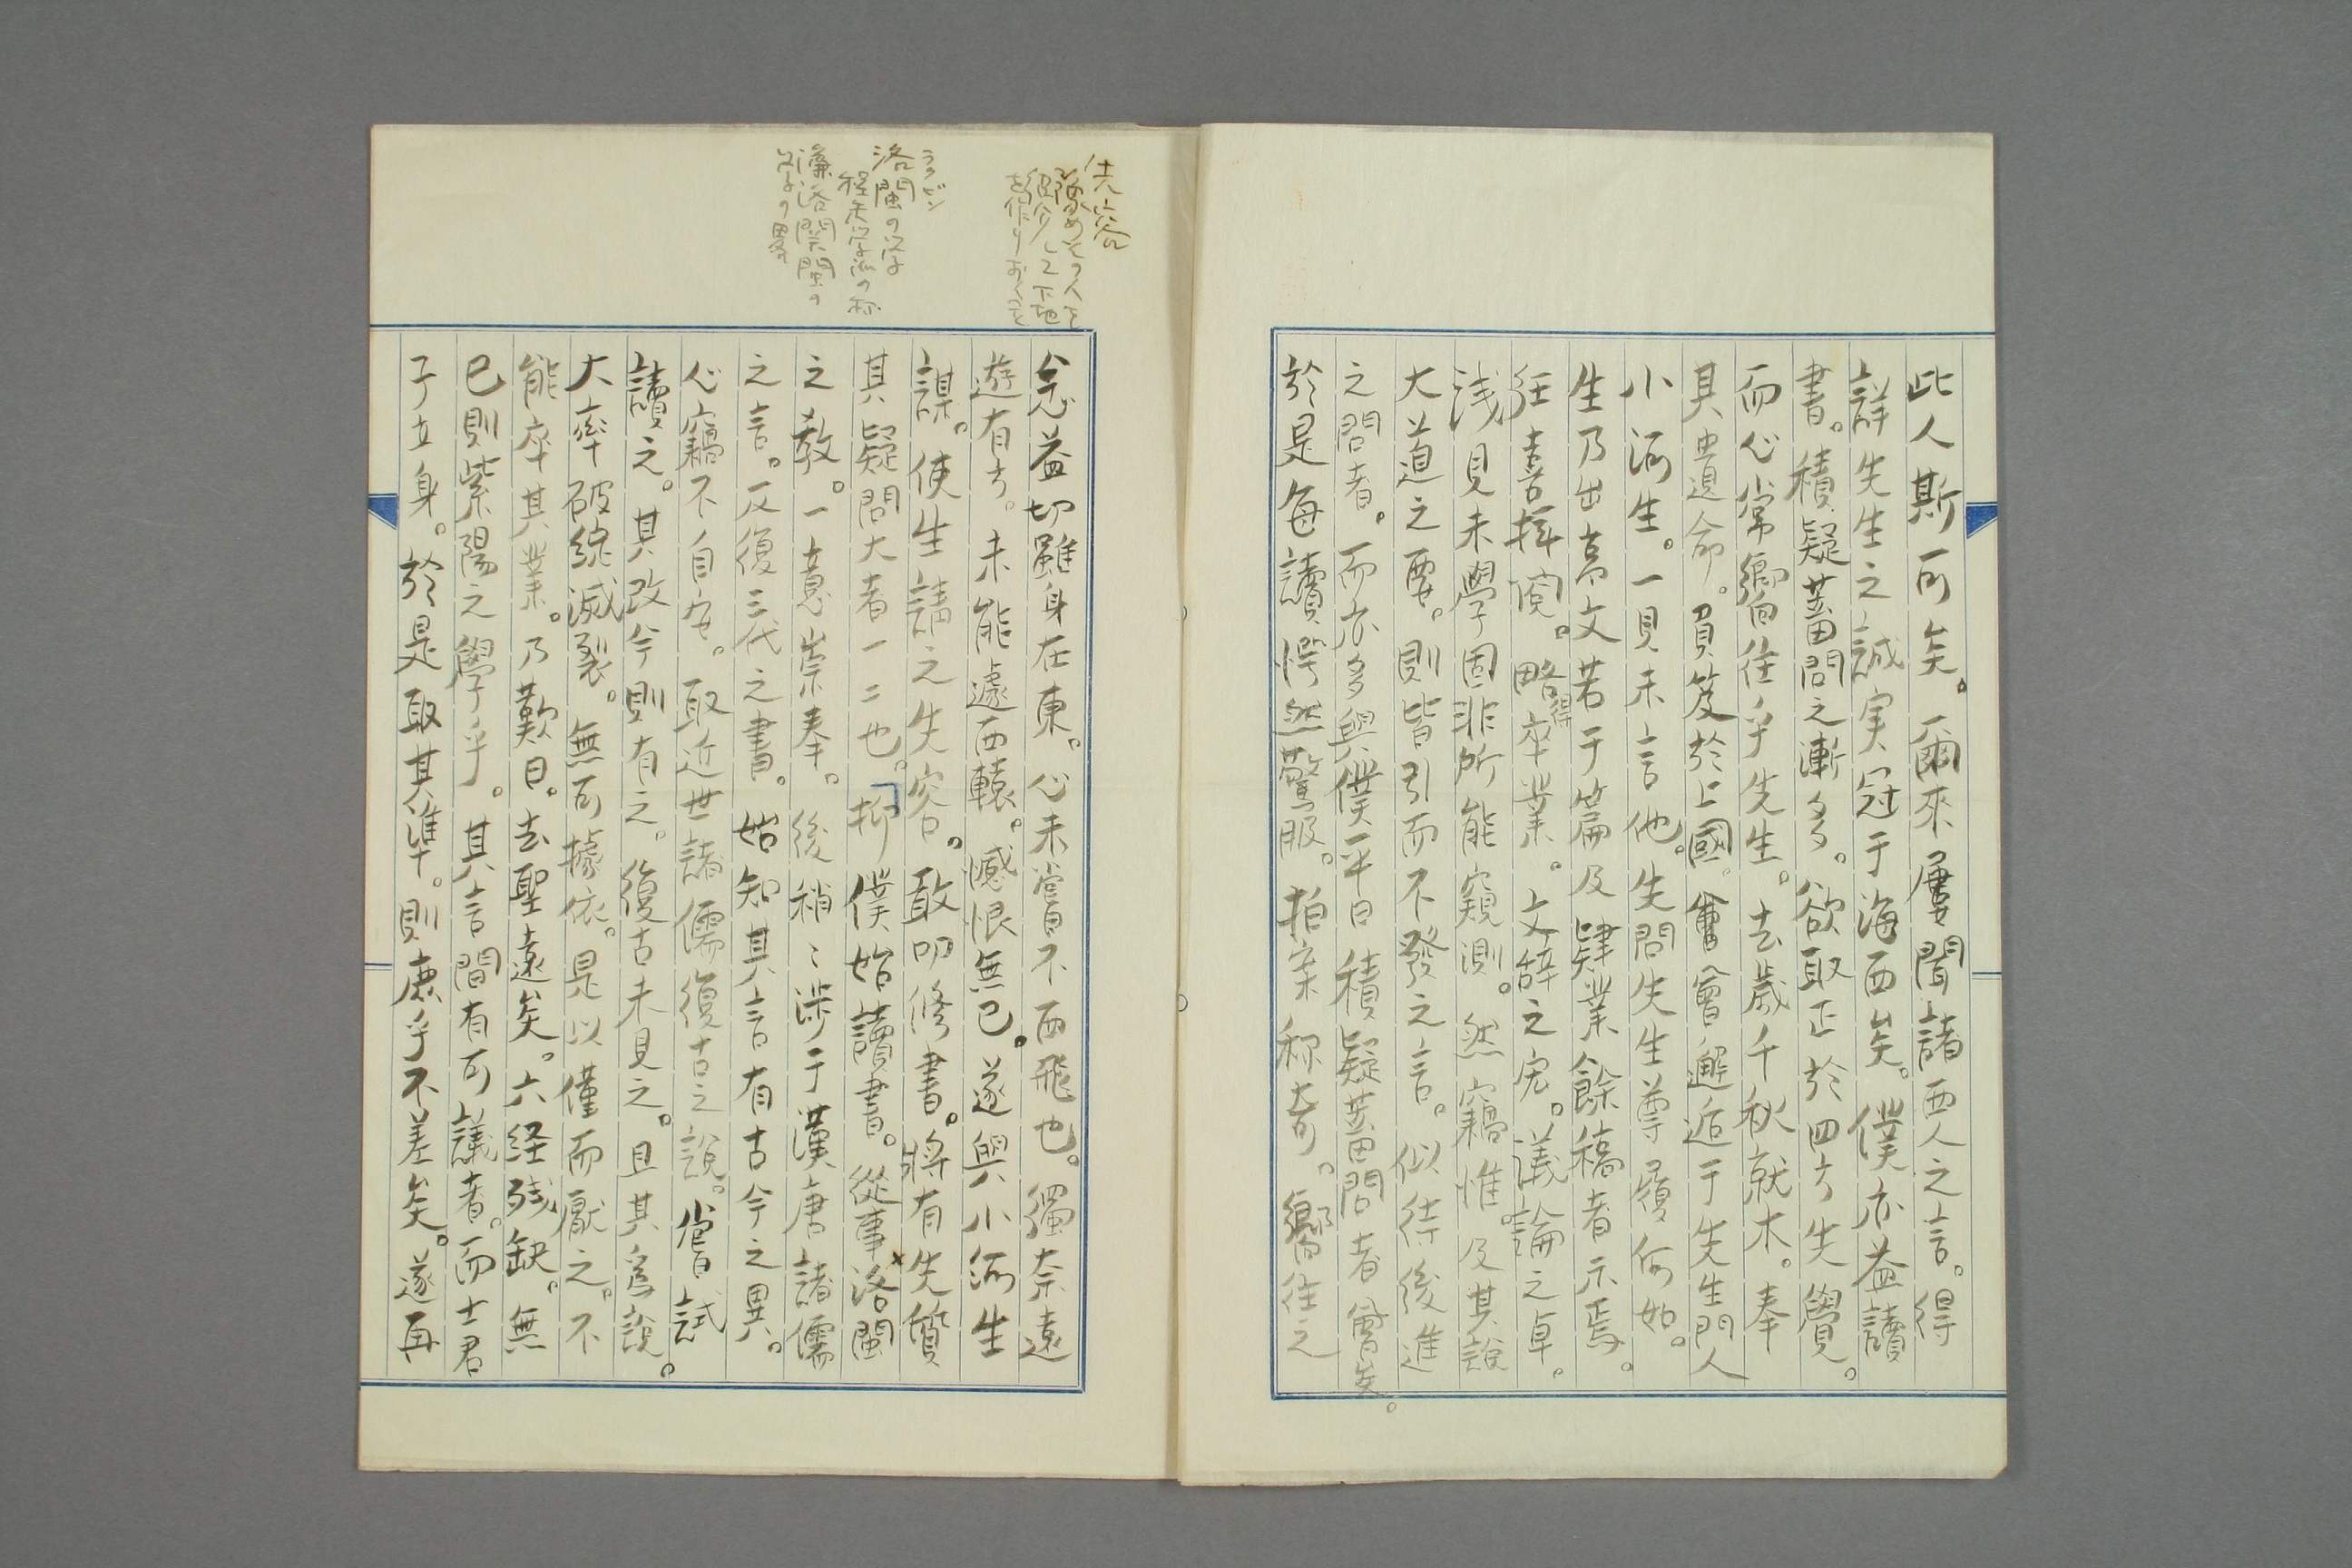 此人斯可矣。爾來屢聞諸西人之言。得
詳先生之誠実冠于海西矣。僕亦益讀
書。積疑蓄問之漸多。欲取正於四方先覺。
而心常嚮往乎先生。去歲千秋就木。奉
其遺命。負笈於上國。曾邂逅于先生門人
小河生。一見未言他。生問先生尊履何如。
生乃出高文若干篇及肄業餘稿者示焉。
狂喜捧閲。略得卒業。文辞之宏。議論之卓。
浅見未學固非所能窺測。然竊惟。及其說
大道之要。則皆引而不發之言。似待後進
之問者。而亦多與僕平日積疑蓄問者曾矣。
於是每讀愕然驚服。拍案称奇。嚮往之
念益切雖身在東。心未嘗不西飛也。獨奈遠
遊有方。未能遽西轅。憾恨無已。遂與小河生
謀。使生請之先容。敢叩修書。將有先質
其疑問大者一二也。「抑僕始讀書。從事洛閩
之教。一意崇奉。後稍々渉于漢唐諸儒
之言。反復三代之書。始知其言有古今之異。
心竊不自安。取近世諸儒復古之說。嘗試
讀之。其改今則有之。復古未見之。且其為說。
大率破綻滅裂。無可據依。是以僅而厭之。不
能卒其業。乃歎曰。去聖遠矣。六経残缺。無
已則紫陽之學乎。其言間有可議者。而士君
子立身。於是取其準。則庶乎不差矣。遂再
先容
豫めその人を
紹介して下地
を作りおくこと
ラクビン
洛閩の学
程朱学派の称
濂洛関閩の
学の略